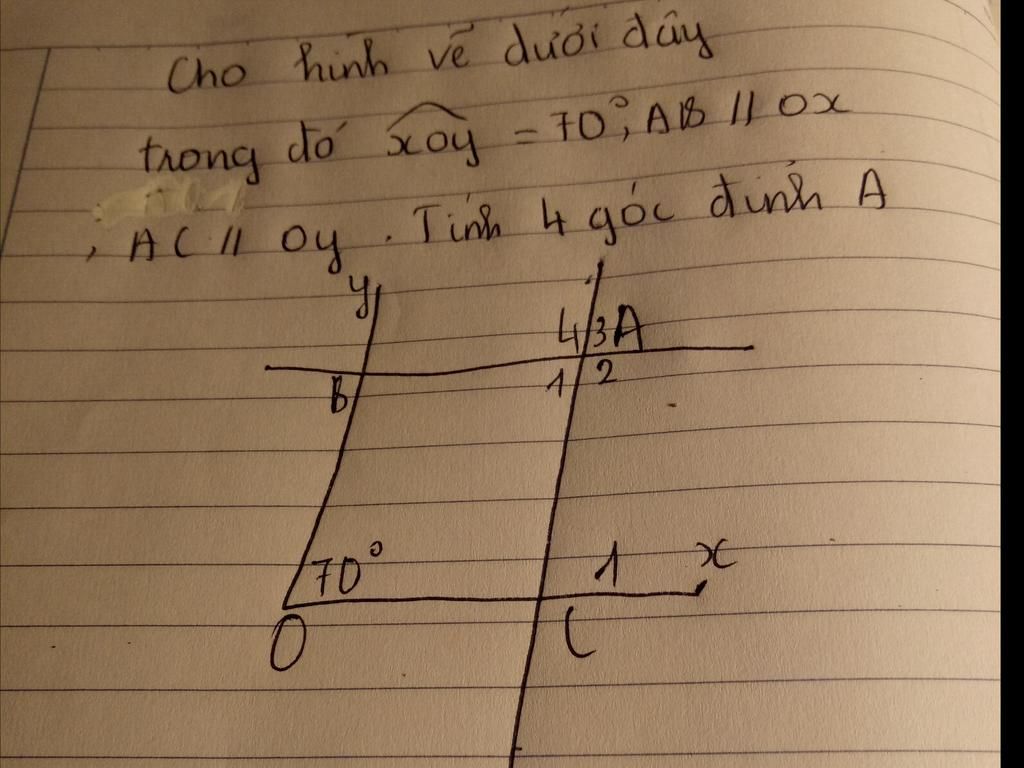 Cho hình vẽ dưới đây
trong đó xoy = 70°; AB // ox
, AC // oy . Tính 4 góc đỉnh A
y
4 3 A
B 1 2
70° 1 x
O C